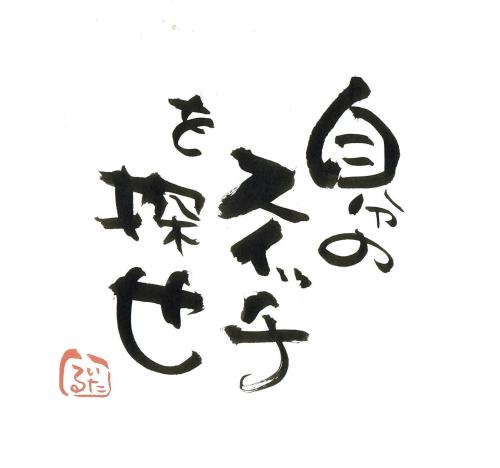 自分の
スイッチ
を探せ
いたる